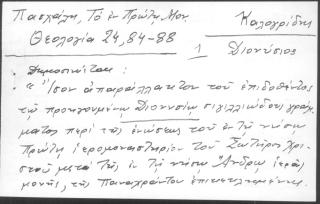 Πασχάλη, Τὸ ἐν Πρώτῃ Μον. Καλογρίδης
Θεολογία 24, 84-88 1 Διονύσιος
Δημοσιεύεται:
« Ἴσον ἀπαράλλακτον τοῦ ἐπιδοθέντος
τῷ προηγουμένῳ Διονυσίῳ σιγιλλιώδους γράμ
ματος περὶ τῆς ἑνώσεως τοῦ ἐν τῇ νήσῳ
Πρώτῃ ἱερομοναστηρίου τοῦ Σωτῆρος Χρι
στοῦ μετὰ τῆς ἐν τῇ νήσῳ Ἄνδρῳ ἱερᾶς
μονῆς, τῆς Παναχράντου